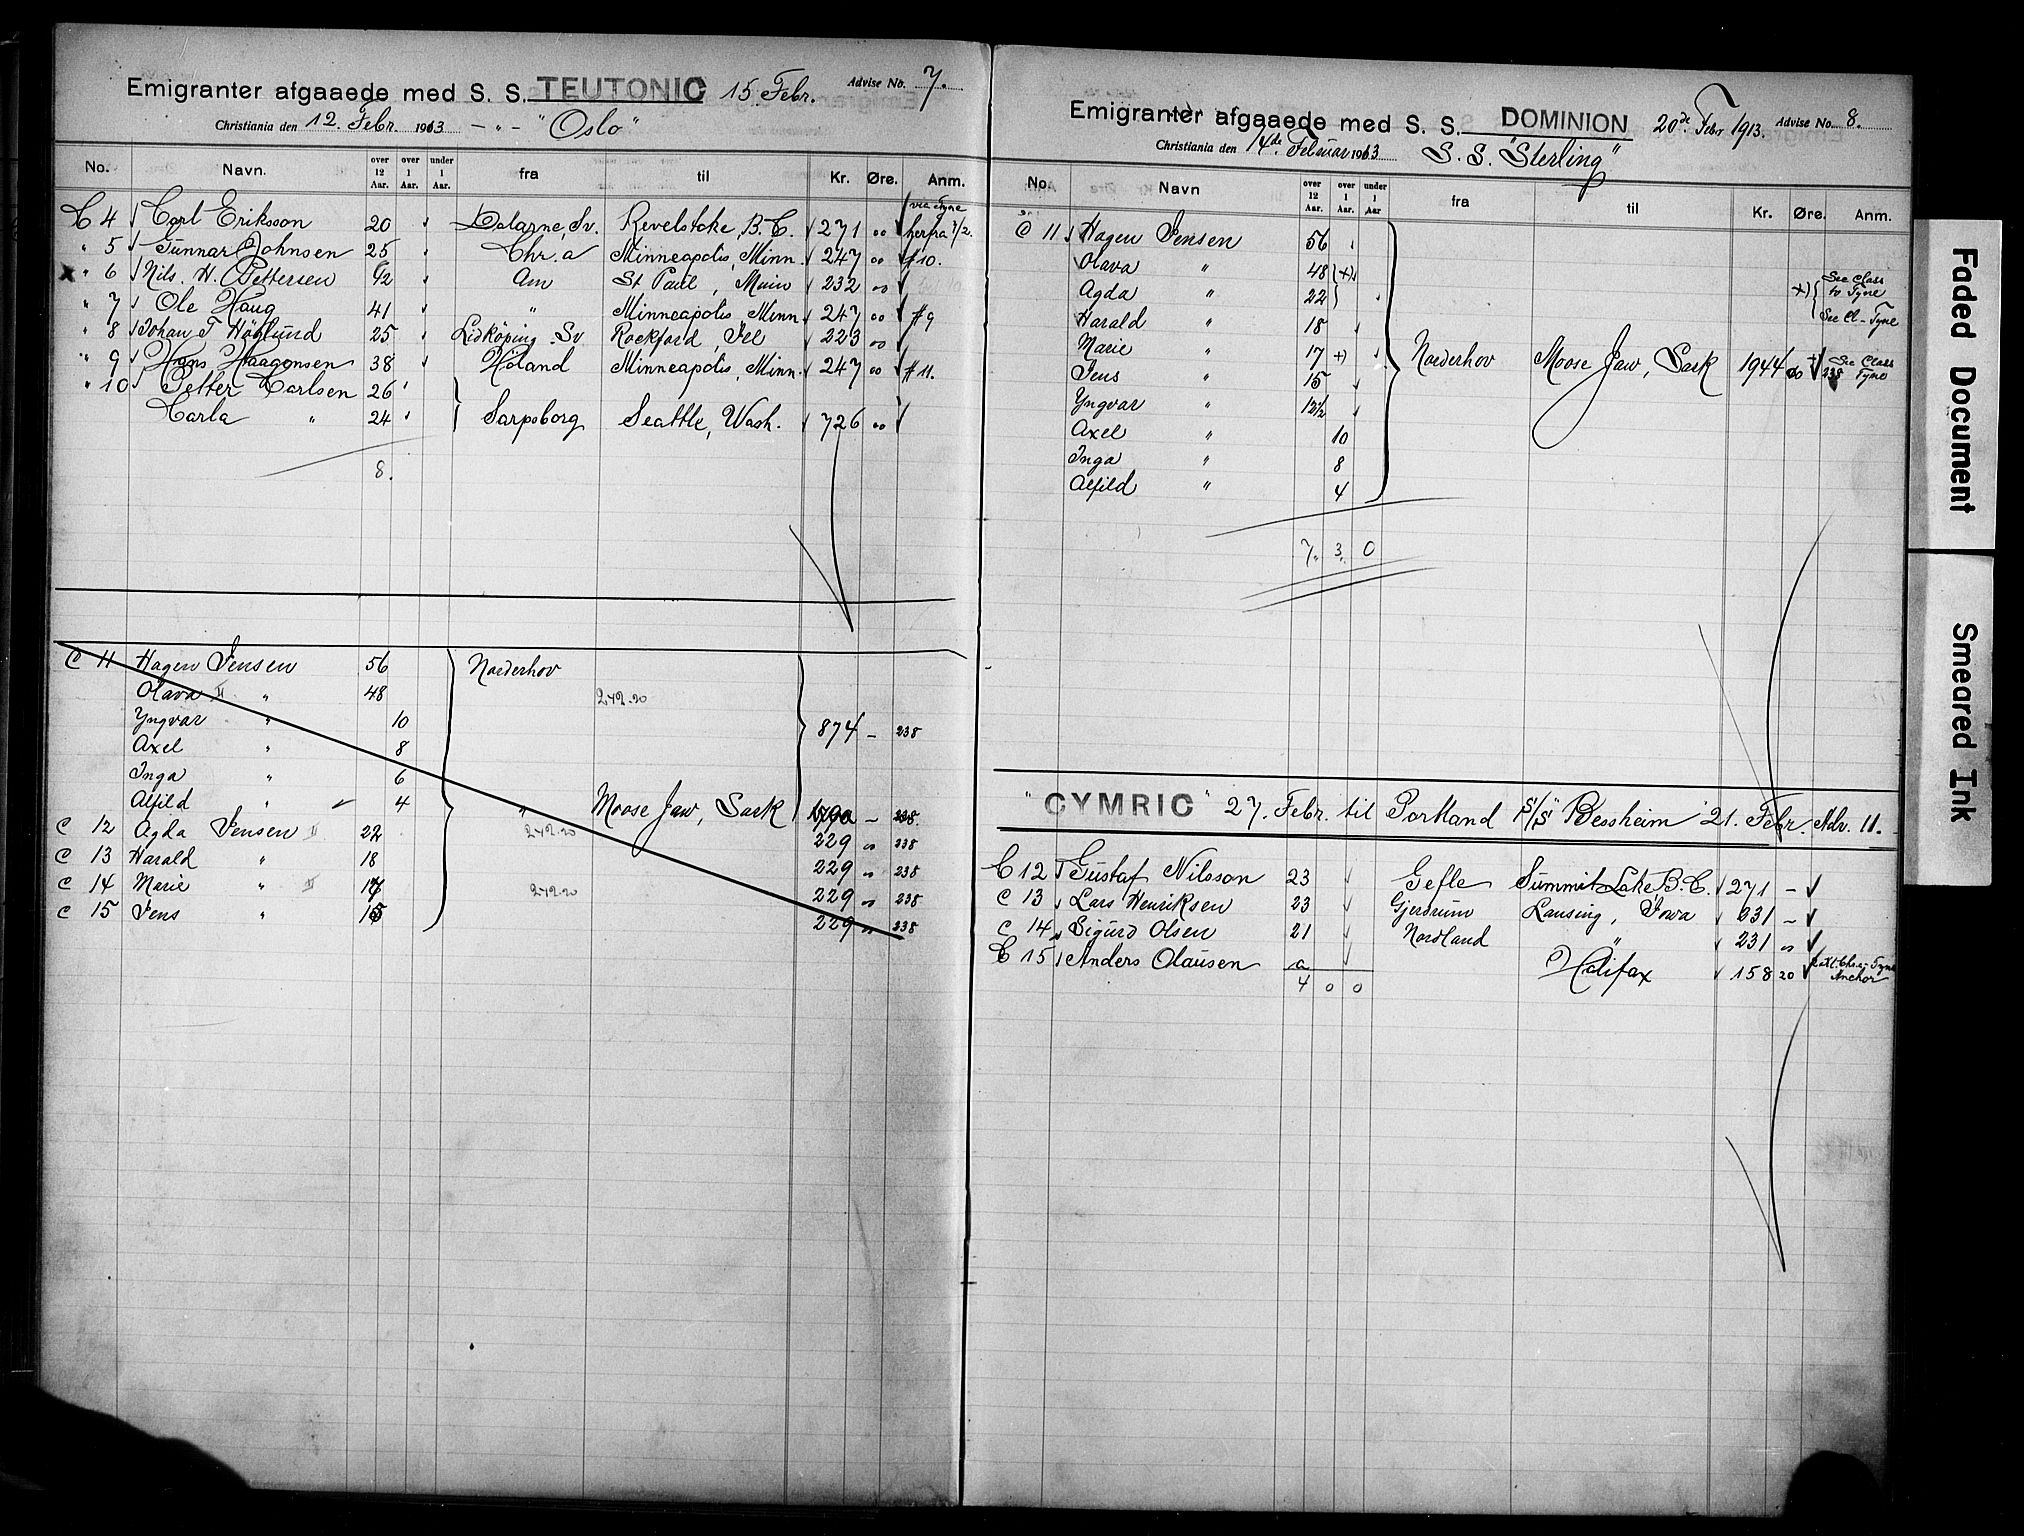 Emigranter afgaaede med S. S. TEUTONIC 15 Febr. Advise No. 7.
Christiania den 12 Febr. 1913 - " - "Oslo"
No. Navn. over 12 Aar. over 1 Aar. under 1 Aar. fra til Kr. Øre. Anm.
C 4 Carl Eriksson 20 Dalarne, Sv. Revelstoke, B. C. 271 00 via Tyne herfra 7/2.
" 5 Gunnar Johnsen 25 Chr.a Minneapolis, Minn. 247 00 # 10.
x " 6 Nils. H. Pettersen 42 Am St Paul, Minn 232 00
" 7 Ole Haug 41 " Minneapolis, Minn 247 00 # 9
" 8 Johan T Höglund 25 Lidköping Sv Rockford, Ill 223 00
" 9 Hans Haagensen 38 Höland Minneapolis, Minn. 247 00 # 11.
" 10 Petter Carlsen 26
Carla " 24 Sarpsborg Seattle, Wash. 726 00
8.
C 11 Hagen Jensen 56 Norderhov
Olava " 48 242.20
Yngvar " 10 874 - 238
Axel " 8
Inga " 6
Alfild " 4 " Moose Jaw, Sask - 238.
C 12 Agda Jensen 22 242.20 229 " 238
C 13 Harald " 18 229 " 238
C 14 Marie " 17 242.20 229 " 238
C 15 Jens " 15 229 " 238
Emigranter afgaaede med S. S. DOMINION 20de Febr 1913. Advise No. 8.
Christiania den 14de Februar 1913 S. S. "Sterling"
No. Navn over 12 Aar. over 1 Aar. under 1 Aar fra til Kr. Øre. Anm.
C 11 Hagen Jensen 56
Olava " 48 +)
Agda " 22 +) Sec Class to Tyne
Harald " 18 Sec Cl - Tyne
Marie " 17 +) Norderhov Moose Jaw, Sask 1944 00 + 238 Sec Class Tyne
Jens " 15
Yngvar " 12½
Axel " 10
Inga " 8
Alfild " 4
7. 3. 0
"CYMRIC" 27. Febr. til Portland S/S "Bessheim" 21. Febr. Adv. 11.
C 12 Gustaf Nilsson 23 Gefle Summit Lake B. C. 271 -
C 13 Lars Henriksen 23 Gjerdrum Lansing, Iowa 231 -
C 14 Sigurd Olsen 21 Nordland " 231 00
C 15 Anders Olausen a Halifax 158 20 Chr.a - Tyne Anchor
4 0 0
Faded Document
Smeared Ink